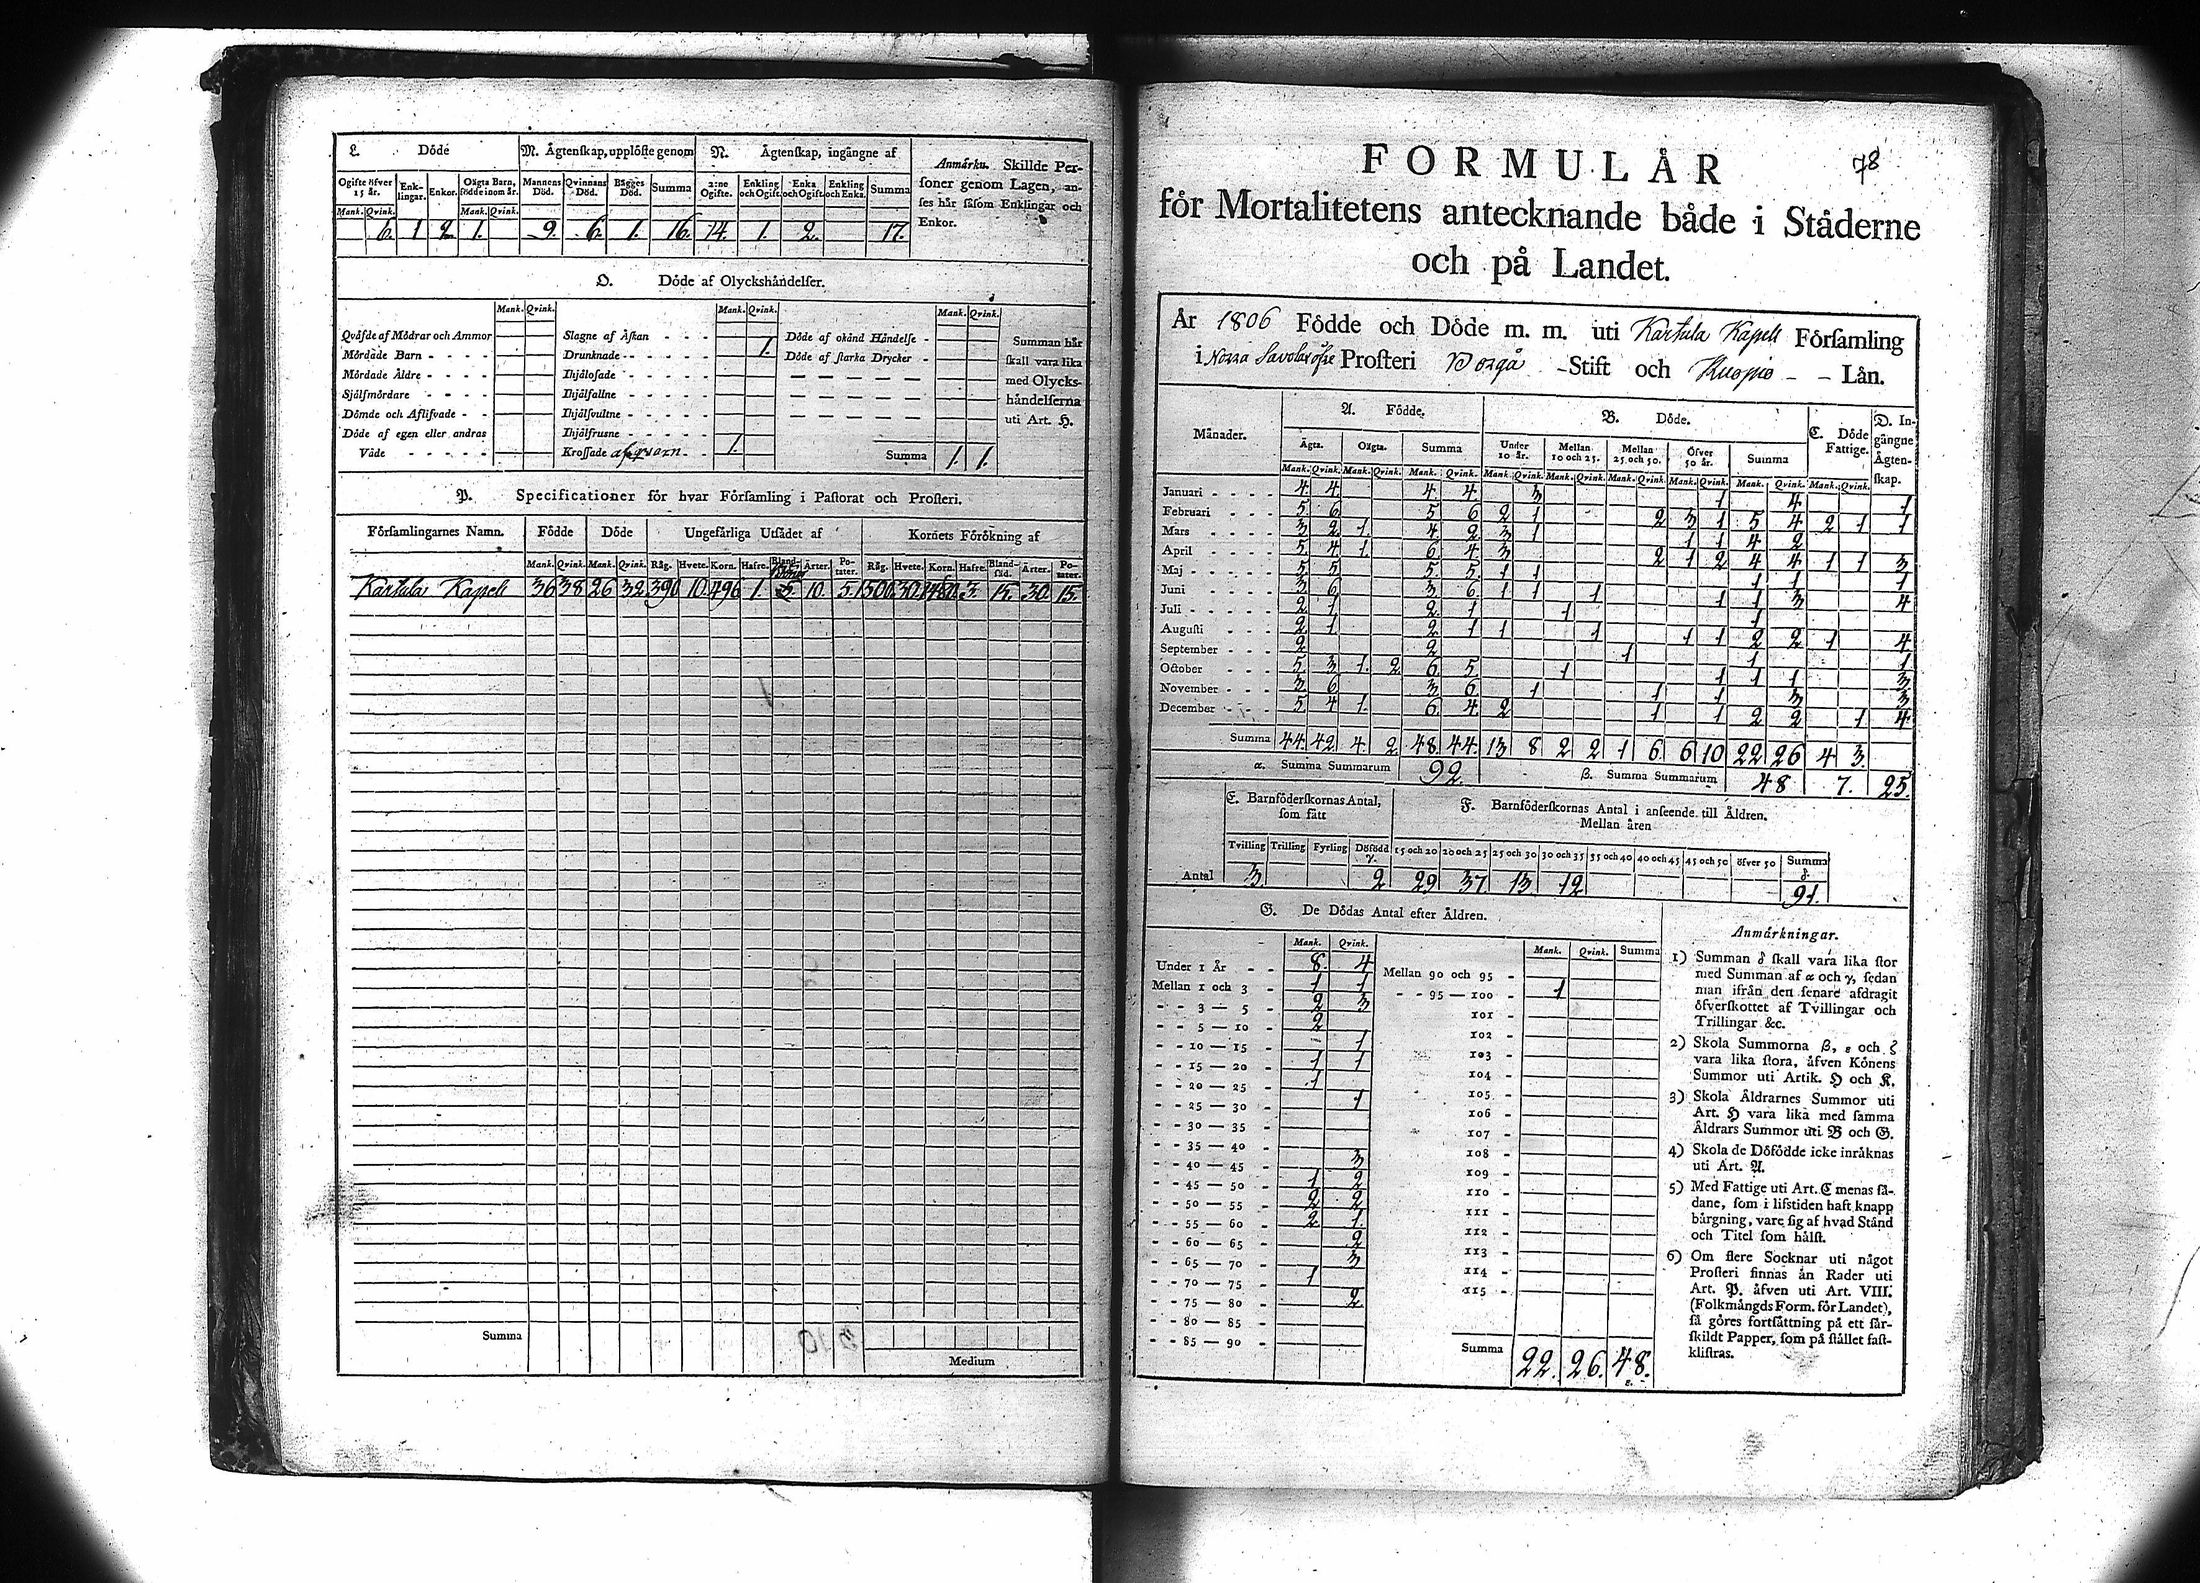 L. Döde
M. Ägtenskap, upplöste genom
N. Ägtenskap, ingångne af
Anmärkn. Skillde Per-
soner genom Lagen, an-
ses här såsom Enklingar och
Enkor.
Ogifte öfver 15 år. Enk-lingar. Enkor. Oägta Barn, födde inom år. Mannens Död. Qvinnans Död. Bägges Död. Summa 2:ne Ogifte. Enkling och Ogift. Enka och Ogift. Enkling och Enka. Summa
Mank. Qvink. Mank. Qvink.
6. 1 2 1. 9. 6. 1. 16. 14. 1. 2. 17.
O. Döde af Olyckshändelser.
Mank. Qvink. Mank. Qvink. Mank. Qvink.
Qväfde af Mödrar och Ammor
Mördade Barn - - - -
Mördade Äldre - - - -
Sjelfmördare - - - -
Dömde och Aflifvade - -
Döde af egen eller andras
Våde - - - - -
Slagne af Åskan - - -
Drunknade - - - - - 1.
Ihjälosade - - - - -
Ihjälfallne - - - - -
Ihjälsvultne - - - - -
Ihjälfrusne - - - - - 1.
Krossade af qvarn - -
Döde af okänd Händelse -
Döde af starka Drycker -
Summa 1. 1.
Summan här
skall vara lika
med Olycks-
händelserna
uti Art. H.
P. Specificationer för hvar Församling i Pastorat och Prosteri.
Församlingarnes Namn. Födde Döde Ungefärliga Utsådet af Kornets Förökning af
Mank. Qvink. Mank. Qvink. Råg. Hvete. Korn. Hafre. Ärter. Po-tater. Råg. Hvete. Korn. Hafre. Bland-säd. Ärter. Po-tater.
Kartula Kapell 36 38 26 32 390 10. 496 1. 10. 5. 1500. 30. 3. 30. 15.
Summa
Medium
78
FORMULÄR
för Mortalitetens antecknande både i Städerne
och på Landet.
År 1806 Födde och Döde m. m. uti Kartula Kapell Församling
i Norra Savolax öfre Prosteri Borgå - Stift och Kuopio - - Län.
Månader. A. Födde. B. Döde. C. Döde Fattige. D. In-gångne Ägten-skap.
Ägta. Oägta. Summa Under 10 år. Mellan 10 och 25. Mellan 25 och 50. Öfver 50 år. Summa
Mank. Qvink. Mank. Qvink. Mank. Qvink. Mank. Qvink. Mank. Qvink. Mank. Qvink. Mank. Qvink. Mank. Qvink. Mank. Qvink.
Januari - - - - 4. 4. 4. 4. 3 1 4. 1
Februari - - - 5. 6 5 6 2 1 2 3 1 5 4 2 1 1
Mars - - - - 3 2 1 4 2 3 1 1 1 4 2
April - - - - 5. 4 1. 6. 4 3 2 1 2 4 4 1 1 3
Maj - - - - - 5 5 5. 5. 1 1 1 1 1
Juni - - - - 3 6 3 6. 1 1 1 1 1 3 4
Juli - - - - - 2 1 2. 1 1 1
Augusti - - - 2 1 2 1 1 1 1 1 2 2 1 4
September - - - 2 2 1 1 1
October - - - 5. 3 1. 2 6. 5. 1 1 1 1 3
November - - - 3 6 3 6. 1 1 1 3 3
December - - - 5. 4 1. 6. 4 2 1 1 2 2 1 4
Summa 44. 42. 4. 2 48. 44. 13 8 2 2 1 6. 6 10 22 26 4 3.
α. Summa Summarum 92. β. Summa Summarum 48 7. 25.
E. Barnföderskornas Antal, som fått
F. Barnföderskornas Antal i anseende till Åldren.
Mellan åren
Tvilling Trilling Fyrling Dödfödd γ. 15 och 20 20 och 25 25 och 30 30 och 35 35 och 40 40 och 45 45 och 50 öfver 50 Summa δ.
Antal 3 2 29 37 13 12 91.
G. De Dödas Antal efter Åldren.
Mank. Qvink. Mank. Qvink. Summa
Under 1 År - - 8. 4
Mellan 1 och 3 - 1 1
- - 3 — 5 - 2 3
- - 5 — 10 - 2
- - 10 — 15 - 1
- - 15 — 20 - 1 1
- - 20 — 25 - 1
- - 25 — 30 - 1
- - 30 — 35 -
- - 35 — 40 -
- - 40 — 45 - 3
- - 45 — 50 - 1 2
- - 50 — 55 - 2 2
- - 55 — 60 - 2 1.
- - 60 — 65 - 2
- - 65 — 70 - 3
- - 70 — 75 - 1
- - 75 — 80 - 2.
- - 80 — 85 -
- - 85 — 90 -
Mellan 90 och 95 -
- - 95 — 100 - 1
101 -
102 -
103 -
104 -
105 -
106 -
107 -
108 -
109 -
110 -
111 -
112 -
113 -
114 -
115 -
Summa 22. 26. 48.
ε.
Anmärkningar.
1) Summan δ skall vara lika stor
med Summan af α och γ, sedan
man ifrån den senare afdragit
öfverskottet af Tvillingar och
Trillingar &c.
2) Skola Summorna β, ε och ζ
vara lika stora, äfven Könens
Summor uti Artik. H och K.
3) Skola Åldrarnes Summor uti
Art. H vara lika med samma
Åldrars Summor uti B och G.
4) Skola de Dödfödde icke inräknas
uti Art. A.
5) Med Fattige uti Art. C menas så-
dane, som i lifstiden haft knapp
bärgning, vare sig af hvad Stånd
och Titel som hälst.
6) Om flere Socknar uti något
Prosteri finnas än Rader uti
Art. P. äfven uti Art. VIII.
(Folkmängds Form. för Landet),
så göres fortsättning på ett sär-
skildt Papper, som på stället fast-
klistras.